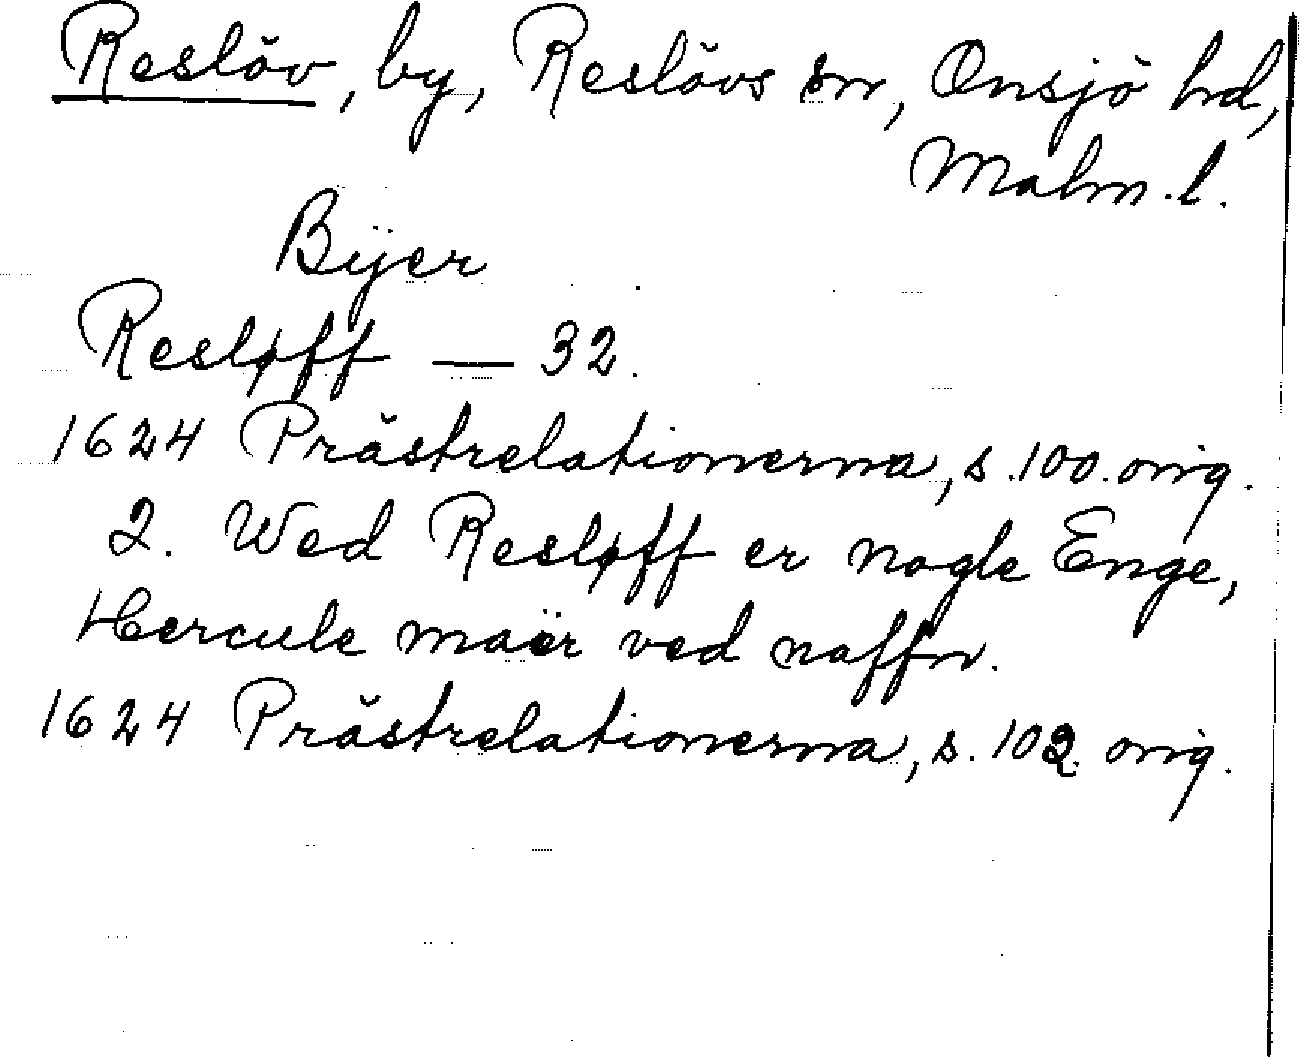 Reslöv, by, Reslövs sn, Onsjö hd,
Malm. l.
Bÿer
Resløff — 32.
1624 Prästrelationerna, s. 100. orig.
2. Wed Resløff er nogle Enge,
Hercule maër ved naffn.
1624 Prästrelationerna, s. 102. orig.